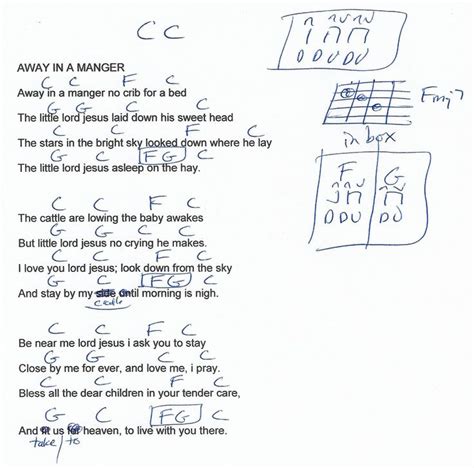 C C
D DU DU
AWAY IN A MANGER
C C F C
Away in a manger no crib for a bed
G G C C
The little lord jesus laid down his sweet head
C C F C
The stars in the bright sky looked down where he lay
G C FG C
The little lord jesus asleep on the hay.
Fmj7
in box
F G
D DU DU
C C F C
The cattle are lowing the baby awakes
G G C C
But little lord jesus no crying he makes.
C C F C
I love you lord jesus; look down from the sky
G C FG C
And stay by my side until morning is nigh.
cradle
C C F C
Be near me lord jesus i ask you to stay
G G C C
Close by me for ever, and love me, i pray.
C C F C
Bless all the dear children in your tender care,
G C FG C
And fit us for heaven, to live with you there.
take / to